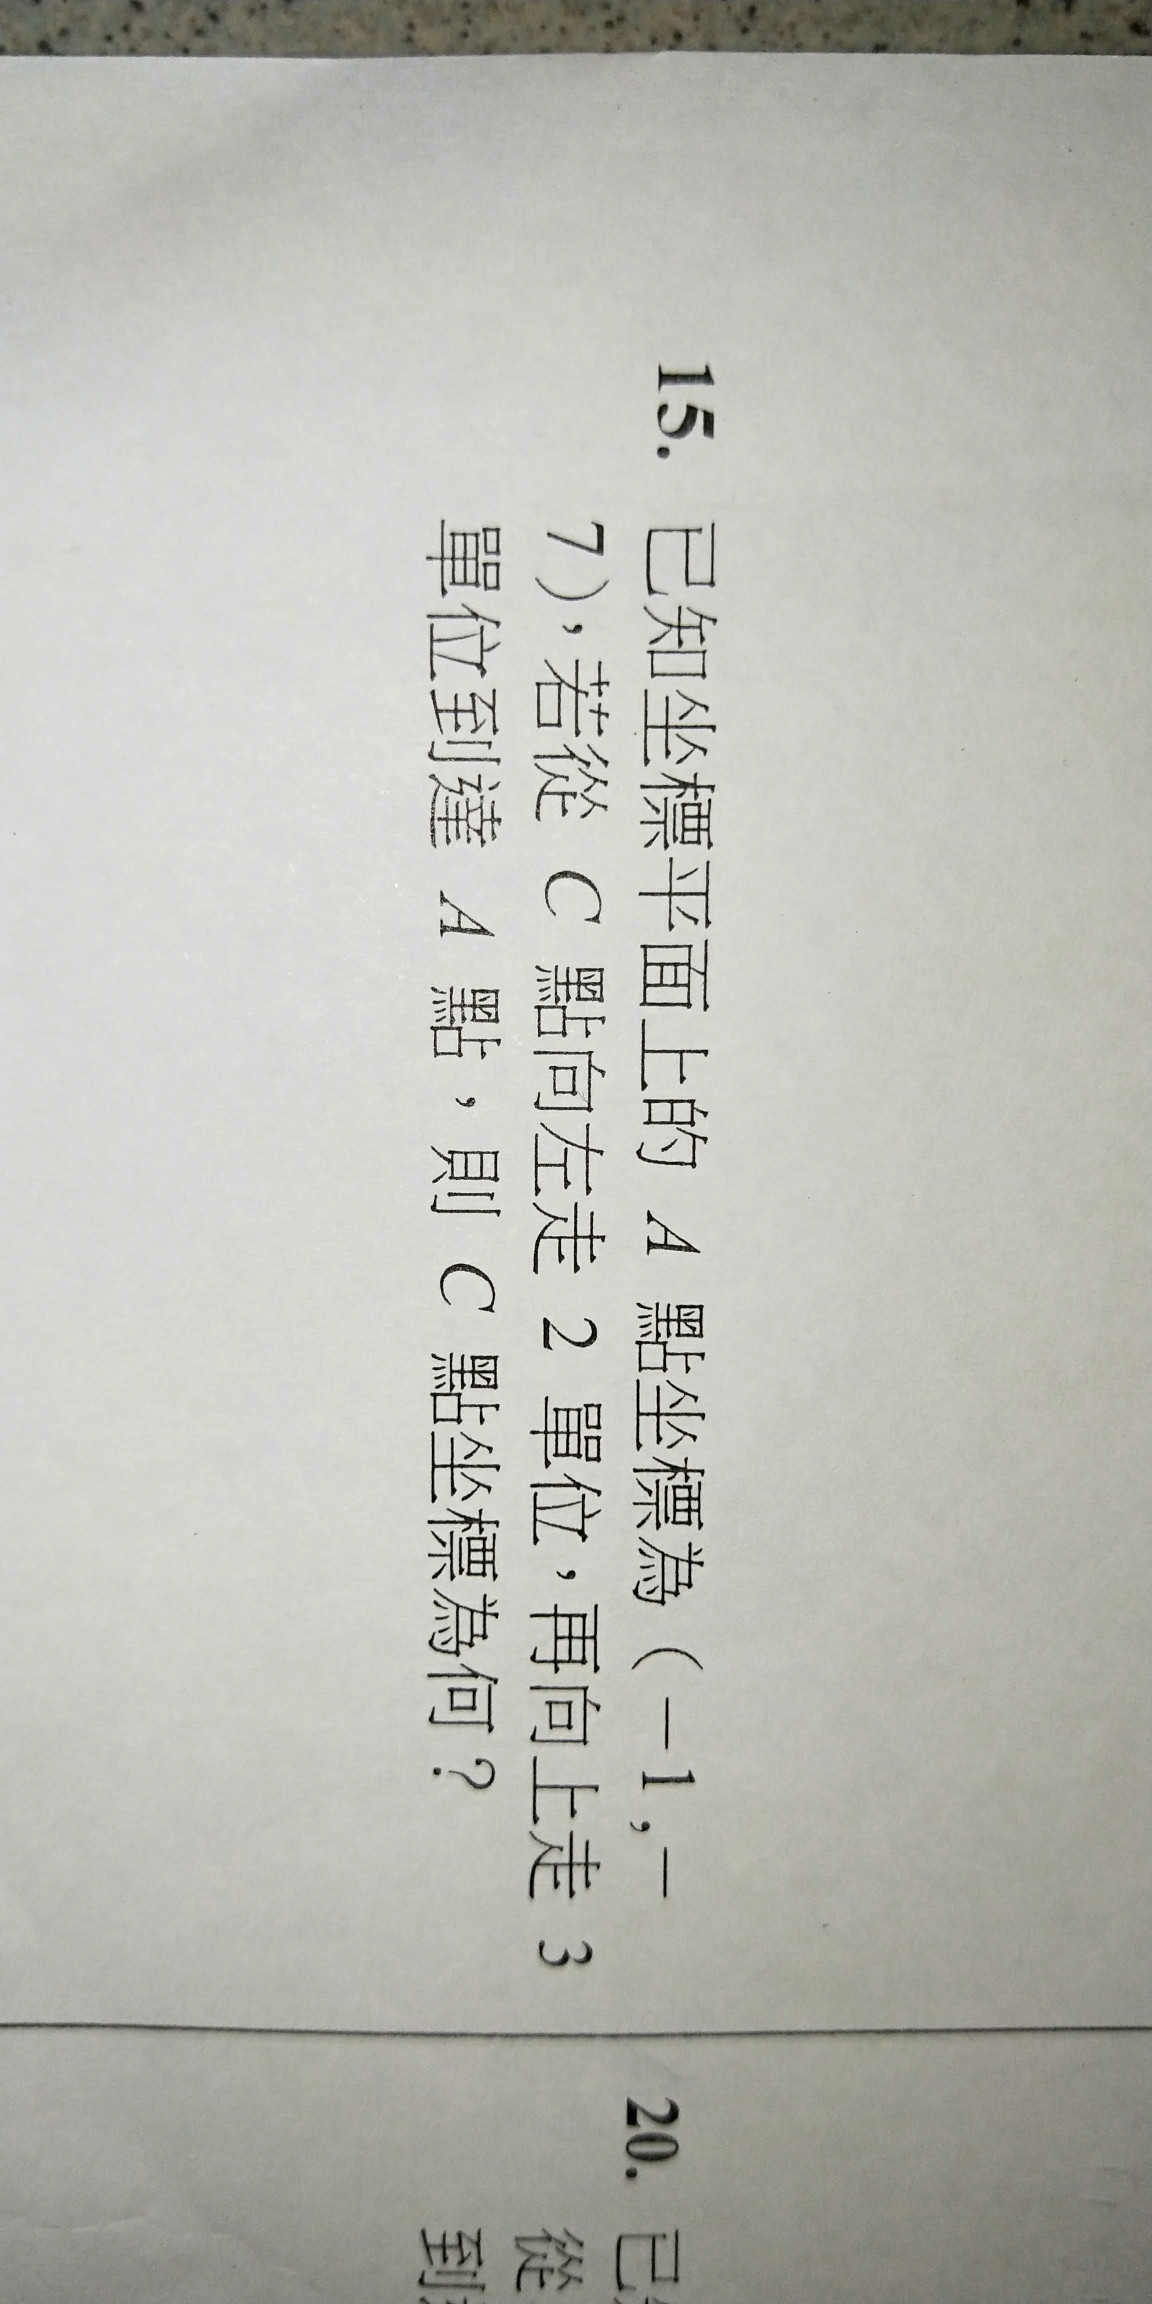 15. 已知坐標平面上的 A 點坐標為 (-1,-
7),若從 C 點向左走 2 單位,再向上走 3
單位到達 A 點,則 C 點坐標為何?
20. 已
從
到